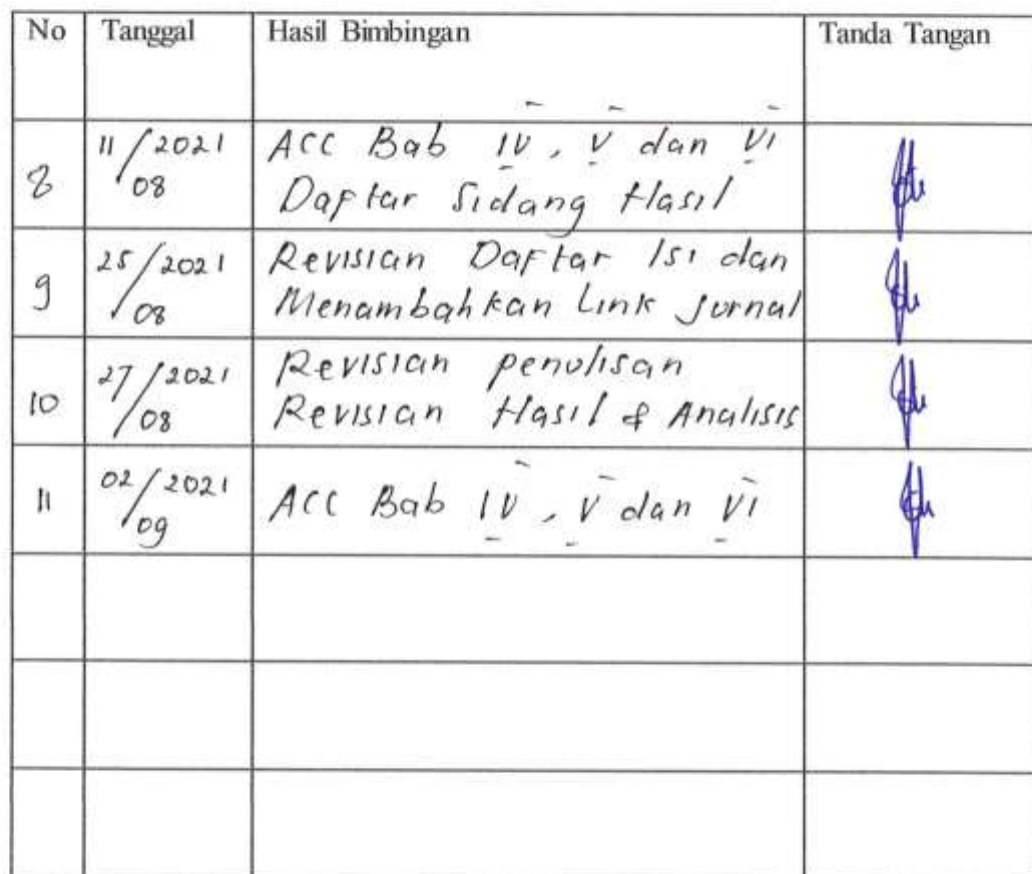 No Tanggal Hasil Bimbingan Tanda Tangan
8 11/08 2021 ACC Bab IV, V dan VI
Daftar Sidang Hasil
9 25/08 2021 Revisian Daftar Isi dan
Menambahkan Link Jurnal
10 27/08 2021 Revisian penulisan
Revisian Hasil & Analisis
11 02/09 2021 ACC Bab IV, V dan VI